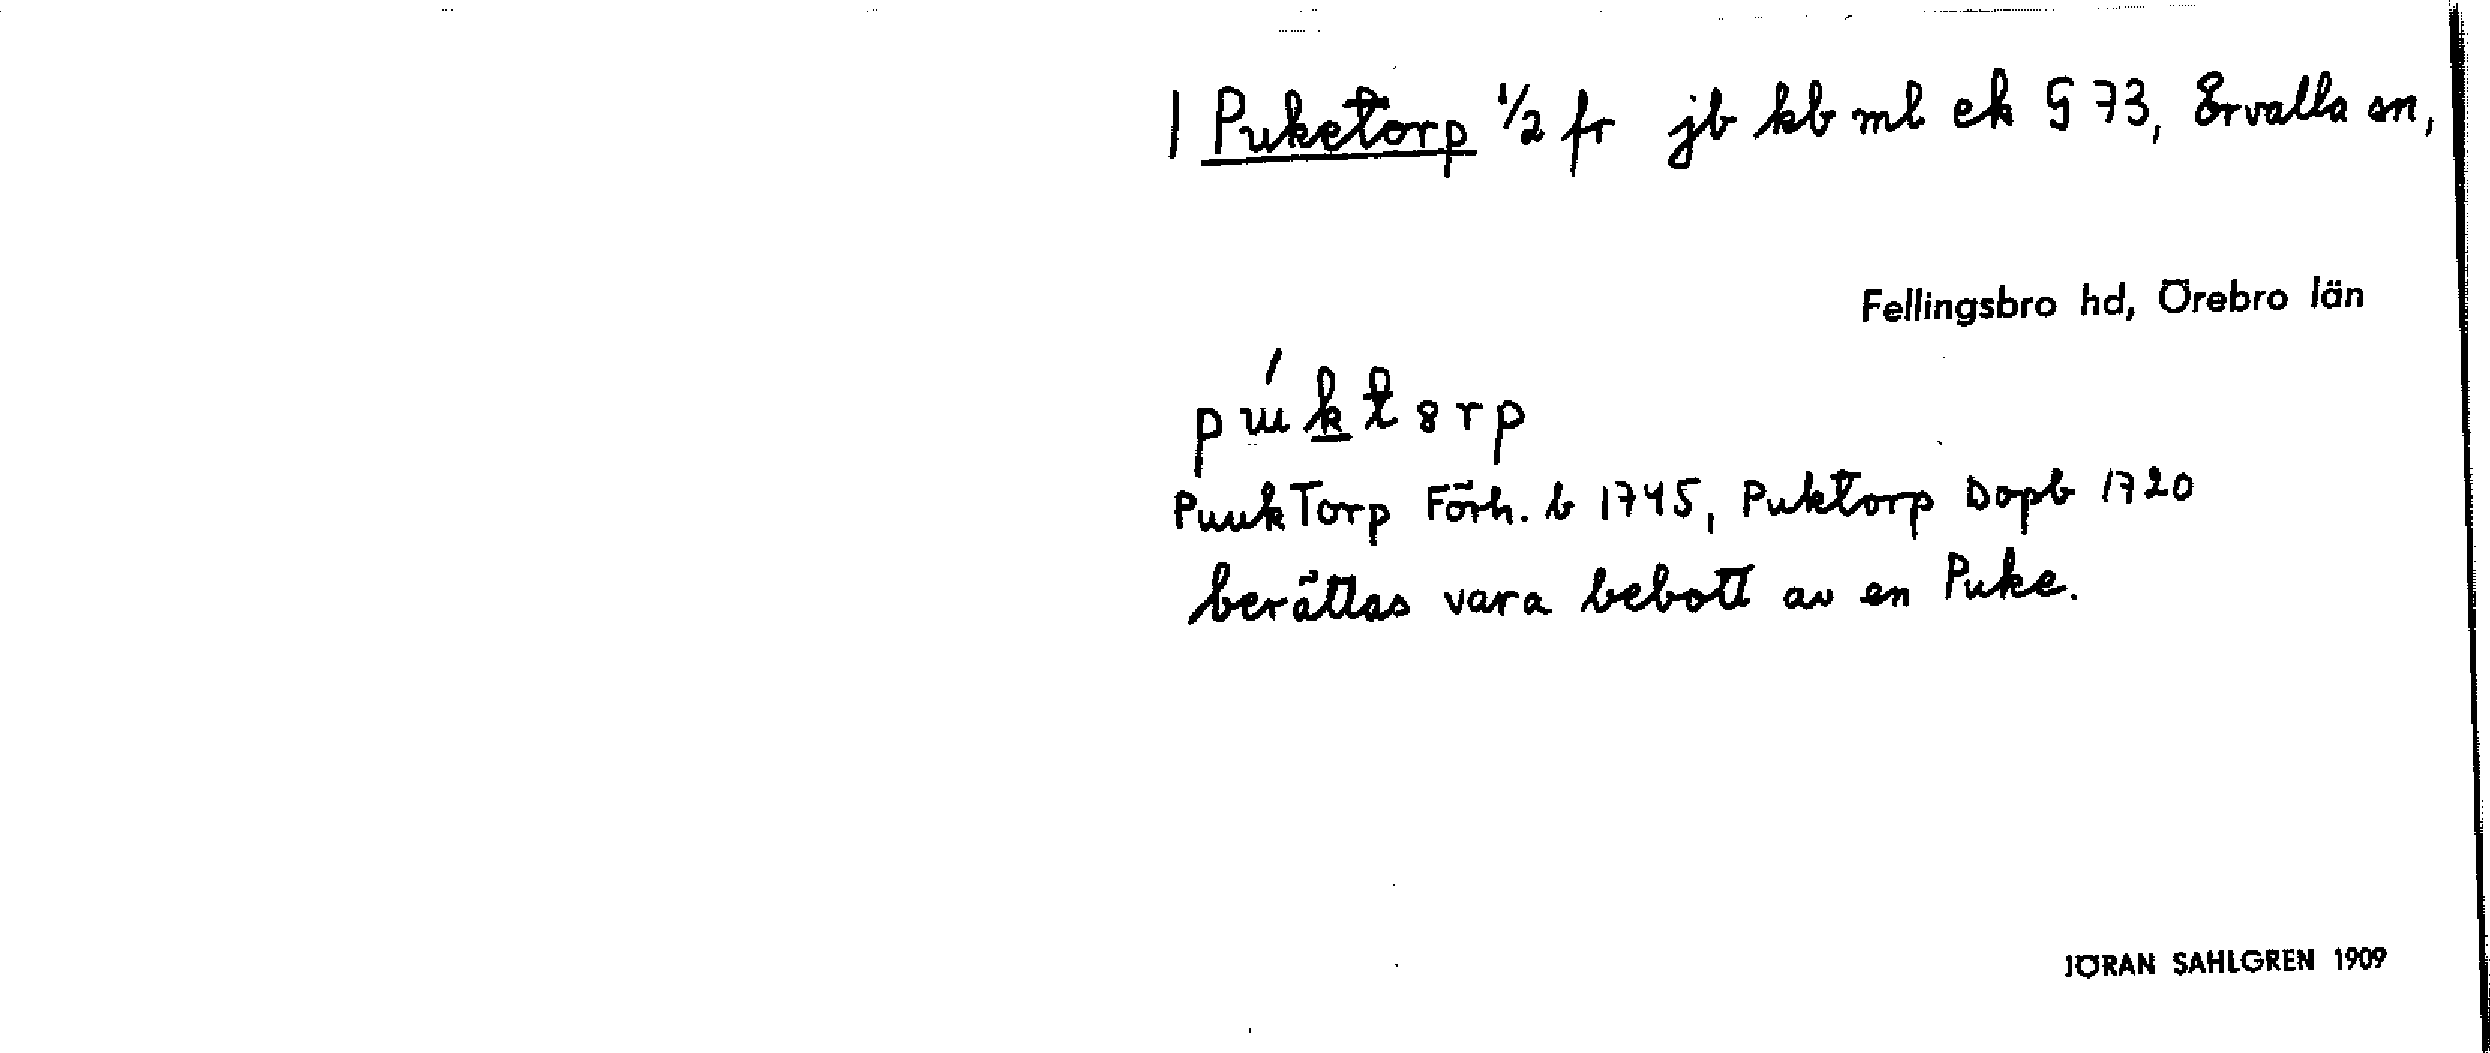 | Puketorp 1/2 fr jb kb ml ek § 73, Ervalla sn,
Fellingsbro hd, Örebro län
PuukTorp Förh. b 1745, Puktorp Dopb 1720
berättas vara bebott av en Puke.
JÖRAN SAHLGREN 1909